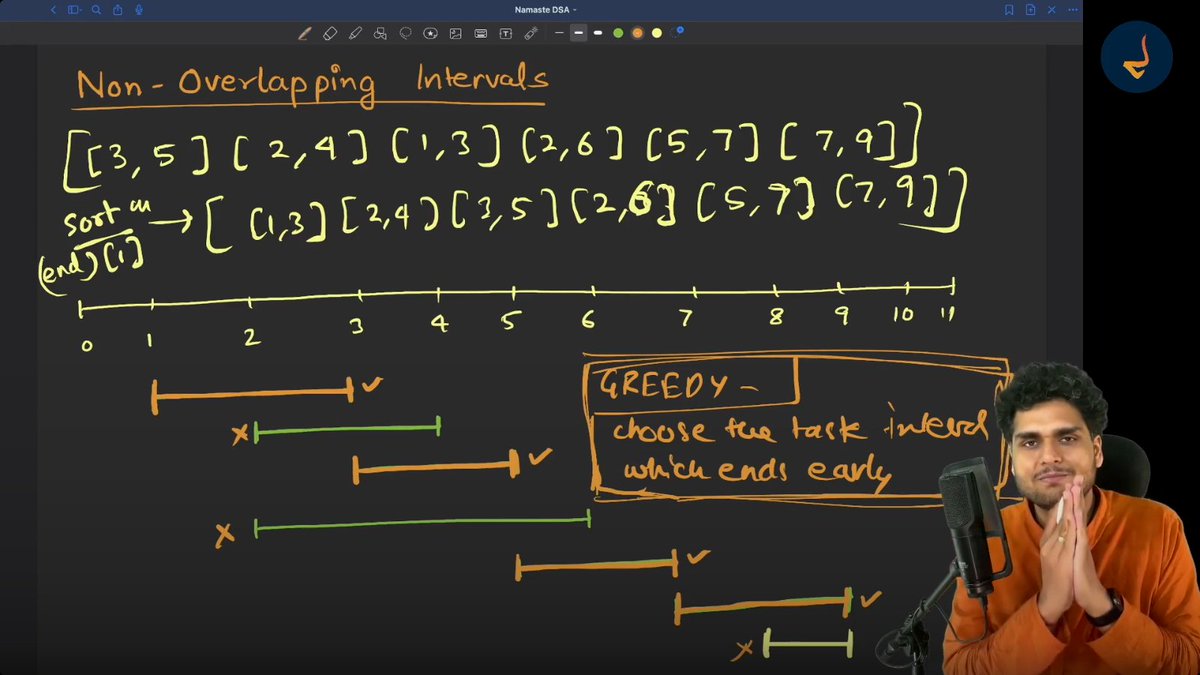 Namaste DSA
Non-Overlapping Intervals
[[3,5] [2,4] [1,3] [2,6] [5,7] [7,9]]
sort on → [[1,3] [2,4] [3,5] [2,6] [5,7] [7,9]]
(end) [1]
0 1 2 3 4 5 6 7 8 9 10 11
GREEDY -
choose the task interval
which ends early